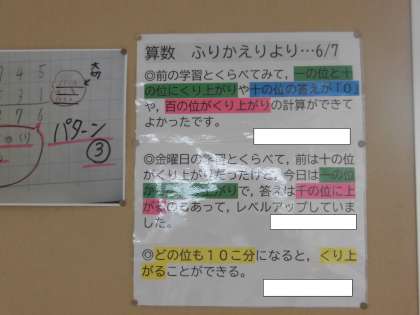 大切
4 5
3 1
7 6
パターン
③
算数　ふりかえりより…6/7
◎前の学習とくらべてみて，一の位と十
の位にくり上がりや十の位の答えが「0」
や，百の位がくり上がりの計算ができて
よかったです。
◎金曜日の学習とくらべて，前は十の位
がくり上がりだったけど，今日は一の位
で，答えは千の位に上
がるのもあって，レベルアップしていま
した。
◎どの位も１０こ分になると，くり上
がることができる。